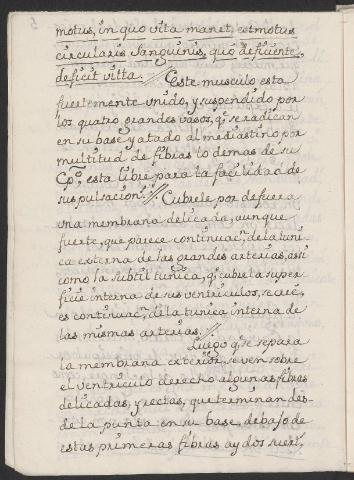 motus, in quo vita manet, est motus
circularis sanguinis, quo defi[c]iente,
deficit vitta. // Este musculo esta
fuertemente unido, y suspendido por
los quatro grandes vasos, q.e se radican
en su base, y atado al mediastino por
multitud de fibras lo demas de su
Cpo, esta libre para la facilidad de
sus pulsacion.s // Cubrele por defuera
una membrana delicada, aunque
fuerte, que parece continuac.n de la tuni-
ca externa de las grandes arterias, asi
como la subtil tunica, q.e cubre la super-
ficie interna de sus ventriculos, se cree,
es continuac.n de la tunica interna de
las mismas arterias. //
Luego q.e se separa
la membrana exterior, se ven sobre
el ventriculo derecho algunas fibras
delicadas, y rectas, que terminan des-
de la punta en su base, debajo de
estas primeras fibras ay dos suert.s